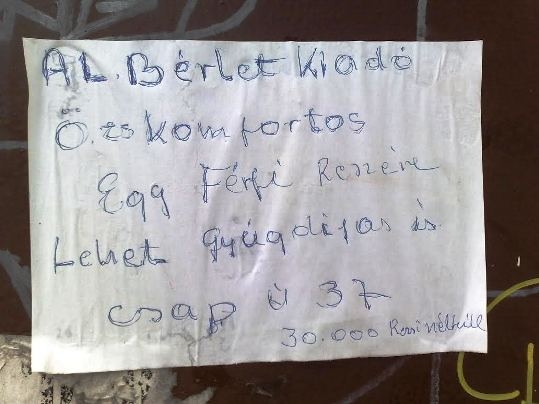 AL. Bérlet Kiadó
Ö. es komfortos
Egg Férfi Reszére
Lehet gyúgdijas is
csap ú 37
30.000 Rezsinélküll